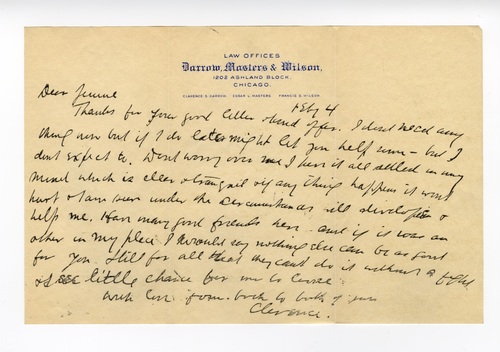 LAW OFFICES
Darrow, Masters & Wilson,
1202 ASHLAND BLOCK,
CHICAGO.
CLARENCE S. DARROW. EDGAR L. MASTERS FRANCIS S. WILSON.
Feby 4
Dear Jennie
Thanks for your good letter & kind offer. I dont need any
thing now but if I do later might let you help some - but I
dont expect to. Dont worry over me I have it all settled in my
mind which is clear & tranquil & if any thing happens it wont
hurt & even under the circumstances will develop &
help me. Have many good friends here - and if it was an
other in my place I would say nothing else can be as good
for you. Still for all that they cant do it without a fight
& see little chance for me to lose
With love from both to both of you
Clarence.